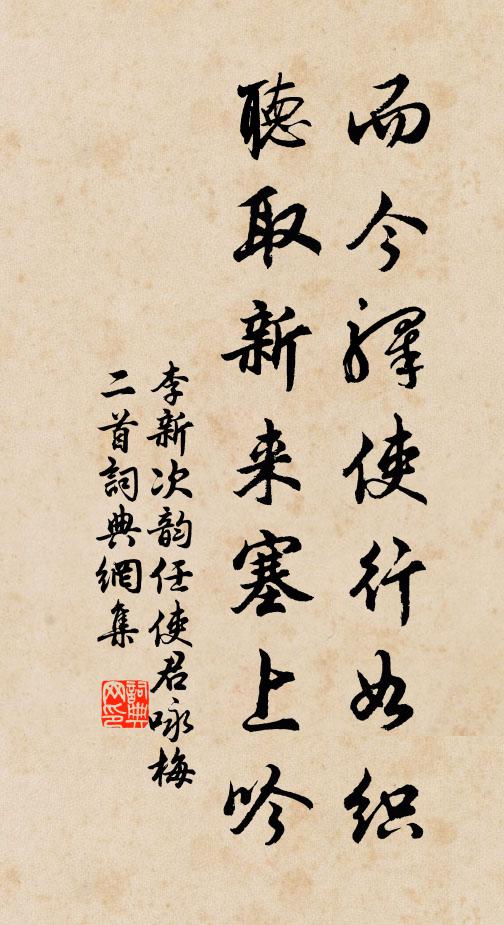 而今驛使行如织
聽取新来塞上吟
李新次韵任使君咏梅
二首詞典網集
詞典
网印